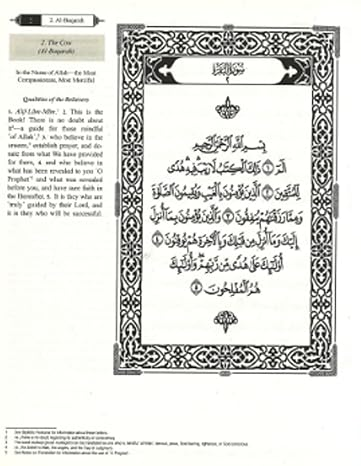 2. Al-Baqarah
2. The Cow
(Al-Baqarah)
In the Name of Allah—the Most
Compassionate, Most Merciful
Qualities of the Believers
1. Alif-Lãm-Mĩm.¹ 2. This is the
Book! There is no doubt about
it²—a guide for those mindful
'of Allah',³ 3. who believe in the
unseen,⁴ establish prayer, and do-
nate from what We have provided
for them, 4. and who believe in
what has been revealed to you 'O
Prophet'⁵ and what was revealed
before you, and have sure faith in
the Hereafter. 5. It is they who are
'truly' guided by their Lord, and
it is they who will be successful.
سُورَةُ البَقَرَةِ
٢
بِسْمِ اللَّهِ الرَّحْمَٰنِ الرَّحِيمِ
الٓمٓ ١ ذَٰلِكَ الْكِتَٰبُ لَا رَيْبَ فِيهِ هُدًى
لِّلْمُتَّقِينَ ٢ الَّذِينَ يُؤْمِنُونَ بِالْغَيْبِ وَيُقِيمُونَ الصَّلَوٰةَ
وَمِمَّا رَزَقْنَٰهُمْ يُنفِقُونَ ٣ وَالَّذِينَ يُؤْمِنُونَ بِمَا أُنزِلَ
إِلَيْكَ وَمَا أُنزِلَ مِن قَبْلِكَ وَبِالْءَاخِرَةِ هُمْ يُوقِنُونَ ٤
أُوْلَٰٓئِكَ عَلَىٰ هُدًى مِّن رَّبِّهِمْ وَأُوْلَٰٓئِكَ
هُمُ الْمُفْلِحُونَ ٥